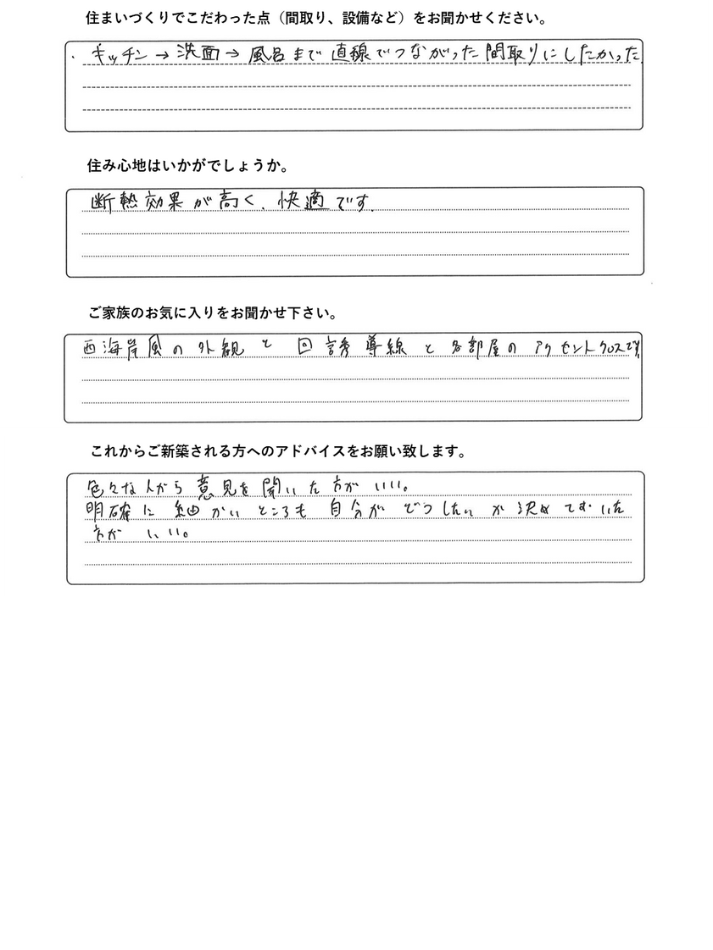 住まいづくりでこだわった点（間取り、設備など）をお聞かせください。
・キッチン→洗面→風呂まで直線でつながった間取りにしたかった。
住み心地はいかがでしょうか。
断熱効果が高く、快適です。
ご家族のお気に入りをお聞かせ下さい。
西海岸風の外観と回誘導線と各部屋のアクセントクロスです
これからご新築される方へのアドバイスをお願い致します。
色々な人から意見を聞いた方がいい。
明確に細かいところも自分がどうしたいか決めておいた
方がいい。